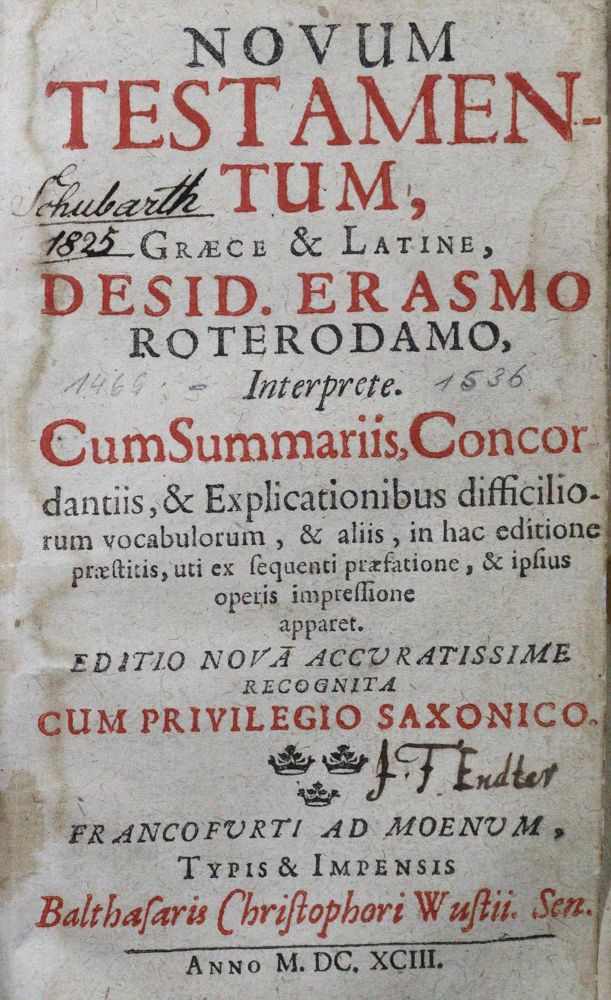 NOVUM
TESTAMEN-
TUM,
Schubarth
1825
GRÆCE & LATINE,
DESID. ERASMO
ROTERODAMO,
1469 = 1536
Interprete.
Cum Summariis, Concor
dantiis, & Explicationibus difficilio-
rum vocabulorum, & aliis, in hac editione
præſtitis, uti ex ſequenti præfatione, & ipſius
operis impreſſione
apparet.
EDITIO NOVA ACCVRATISSIME
RECOGNITA
CUM PRIVILEGIO SAXONICO.
J. F. Endter
FRANCOFVRTI AD MOENVM,
TYPIS & IMPENSIS
Balthaſaris Chriſtophori Wuſtii. Sen.
ANNO M. DC. XCIII.